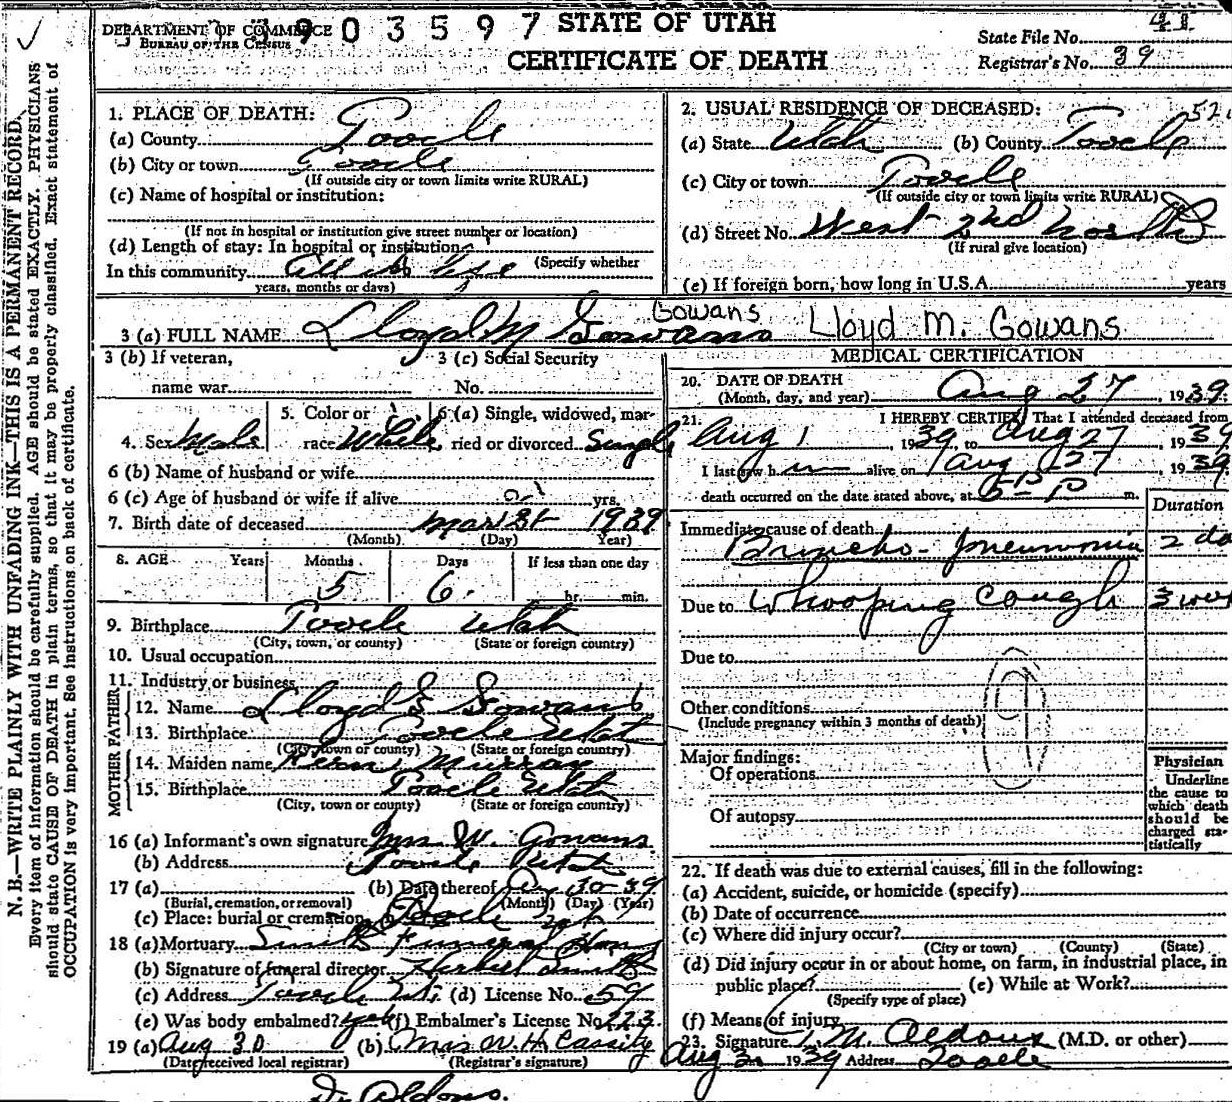 STATE OF UTAH
CERTIFICATE OF DEATH
DEPARTMENT OF COMMERCE
BUREAU OF THE CENSUS
3903597
State File No.
Registrar's No. 39
N. B.—WRITE PLAINLY WITH UNFADING INK—THIS IS A PERMANENT RECORD.
Every item of information should be carefully supplied. AGE should be stated EXACTLY. PHYSICIANS
should state CAUSE OF DEATH in plain terms, so that it may be properly classified. Exact statement of
OCCUPATION is very important. See instructions on back of certificate.
1. PLACE OF DEATH:
(a) County Tooele
(b) City or town Tooele
(If outside city or town limits write RURAL)
(c) Name of hospital or institution:
(If not in hospital or institution give street number or location)
(d) Length of stay: In hospital or institution
(Specify whether
In this community All its life
years, months or days)
2. USUAL RESIDENCE OF DECEASED:
(a) State Utah (b) County Tooele
(c) City or town Tooele
(If outside city or town limits write RURAL)
(d) Street No. West 2nd North
(If rural give location)
(e) If foreign born, how long in U.S.A. years
Gowans
3 (a) FULL NAME Lloyd M Gowans Lloyd M. Gowans
3 (b) If veteran, 3 (c) Social Security
name war No.
4. Sex Male 5. Color or race White 6 (a) Single, widowed, married or divorced Single
6 (b) Name of husband or wife
6 (c) Age of husband or wife if alive yrs.
7. Birth date of deceased Mar 21 1939
(Month) (Day) Year
8. AGE Years Months Days If less than one day
5 6 hr. min.
9. Birthplace Tooele Utah
(City, town, or county) (State or foreign country)
10. Usual occupation
11. Industry or business
FATHER
12. Name Lloyd S Gowans
13. Birthplace Tooele Utah
(City, town or county) (State or foreign country)
MOTHER
14. Maiden name Murray
15. Birthplace Tooele Utah
(City, town or county) (State or foreign country)
16 (a) Informant's own signature Mrs W. Gowans
(b) Address Tooele Utah
17 (a) (b) Date thereof Aug 30 39
(Burial, cremation, or removal) (Month) (Day) (Year)
(c) Place: burial or cremation Tooele
18 (a) Mortuary Smith Funeral Home
(b) Signature of funeral director Herbert Smith
(c) Address Tooele Ut. (d) License No. 59
(e) Was body embalmed? yes (f) Embalmer's License No. 223
19 (a) Aug 30 (b) Mrs W. H. Cassity
(Date received local registrar) (Registrar's signature)
Dr Aldous.
MEDICAL CERTIFICATION
20. DATE OF DEATH Aug 27, 1939
(Month, day, and year)
21. I HEREBY CERTIFY, That I attended deceased from
Aug 1, 1939, to Aug 27, 1939
I last saw h im alive on Aug 27, 1939
death occurred on the date stated above, at 5 P m.
Duration
Immediate cause of death
Broncho-pneumonia 2 da
Due to Whooping Cough 3
Due to
Other conditions
(Include pregnancy within 3 months of death)
9
Major findings:
Of operations
Of autopsy
Physician
Underline
the cause to
which death
should be
charged sta-
tistically
22. If death was due to external causes, fill in the following:
(a) Accident, suicide, or homicide (specify)
(b) Date of occurrence
(c) Where did injury occur?
(City or town) (County) (State)
(d) Did injury occur in or about home, on farm, in industrial place, in
public place? (e) While at Work?
(Specify type of place)
(f) Means of injury
23. Signature M. Aldous (M.D. or other)
Aug 31 1939 Address Tooele